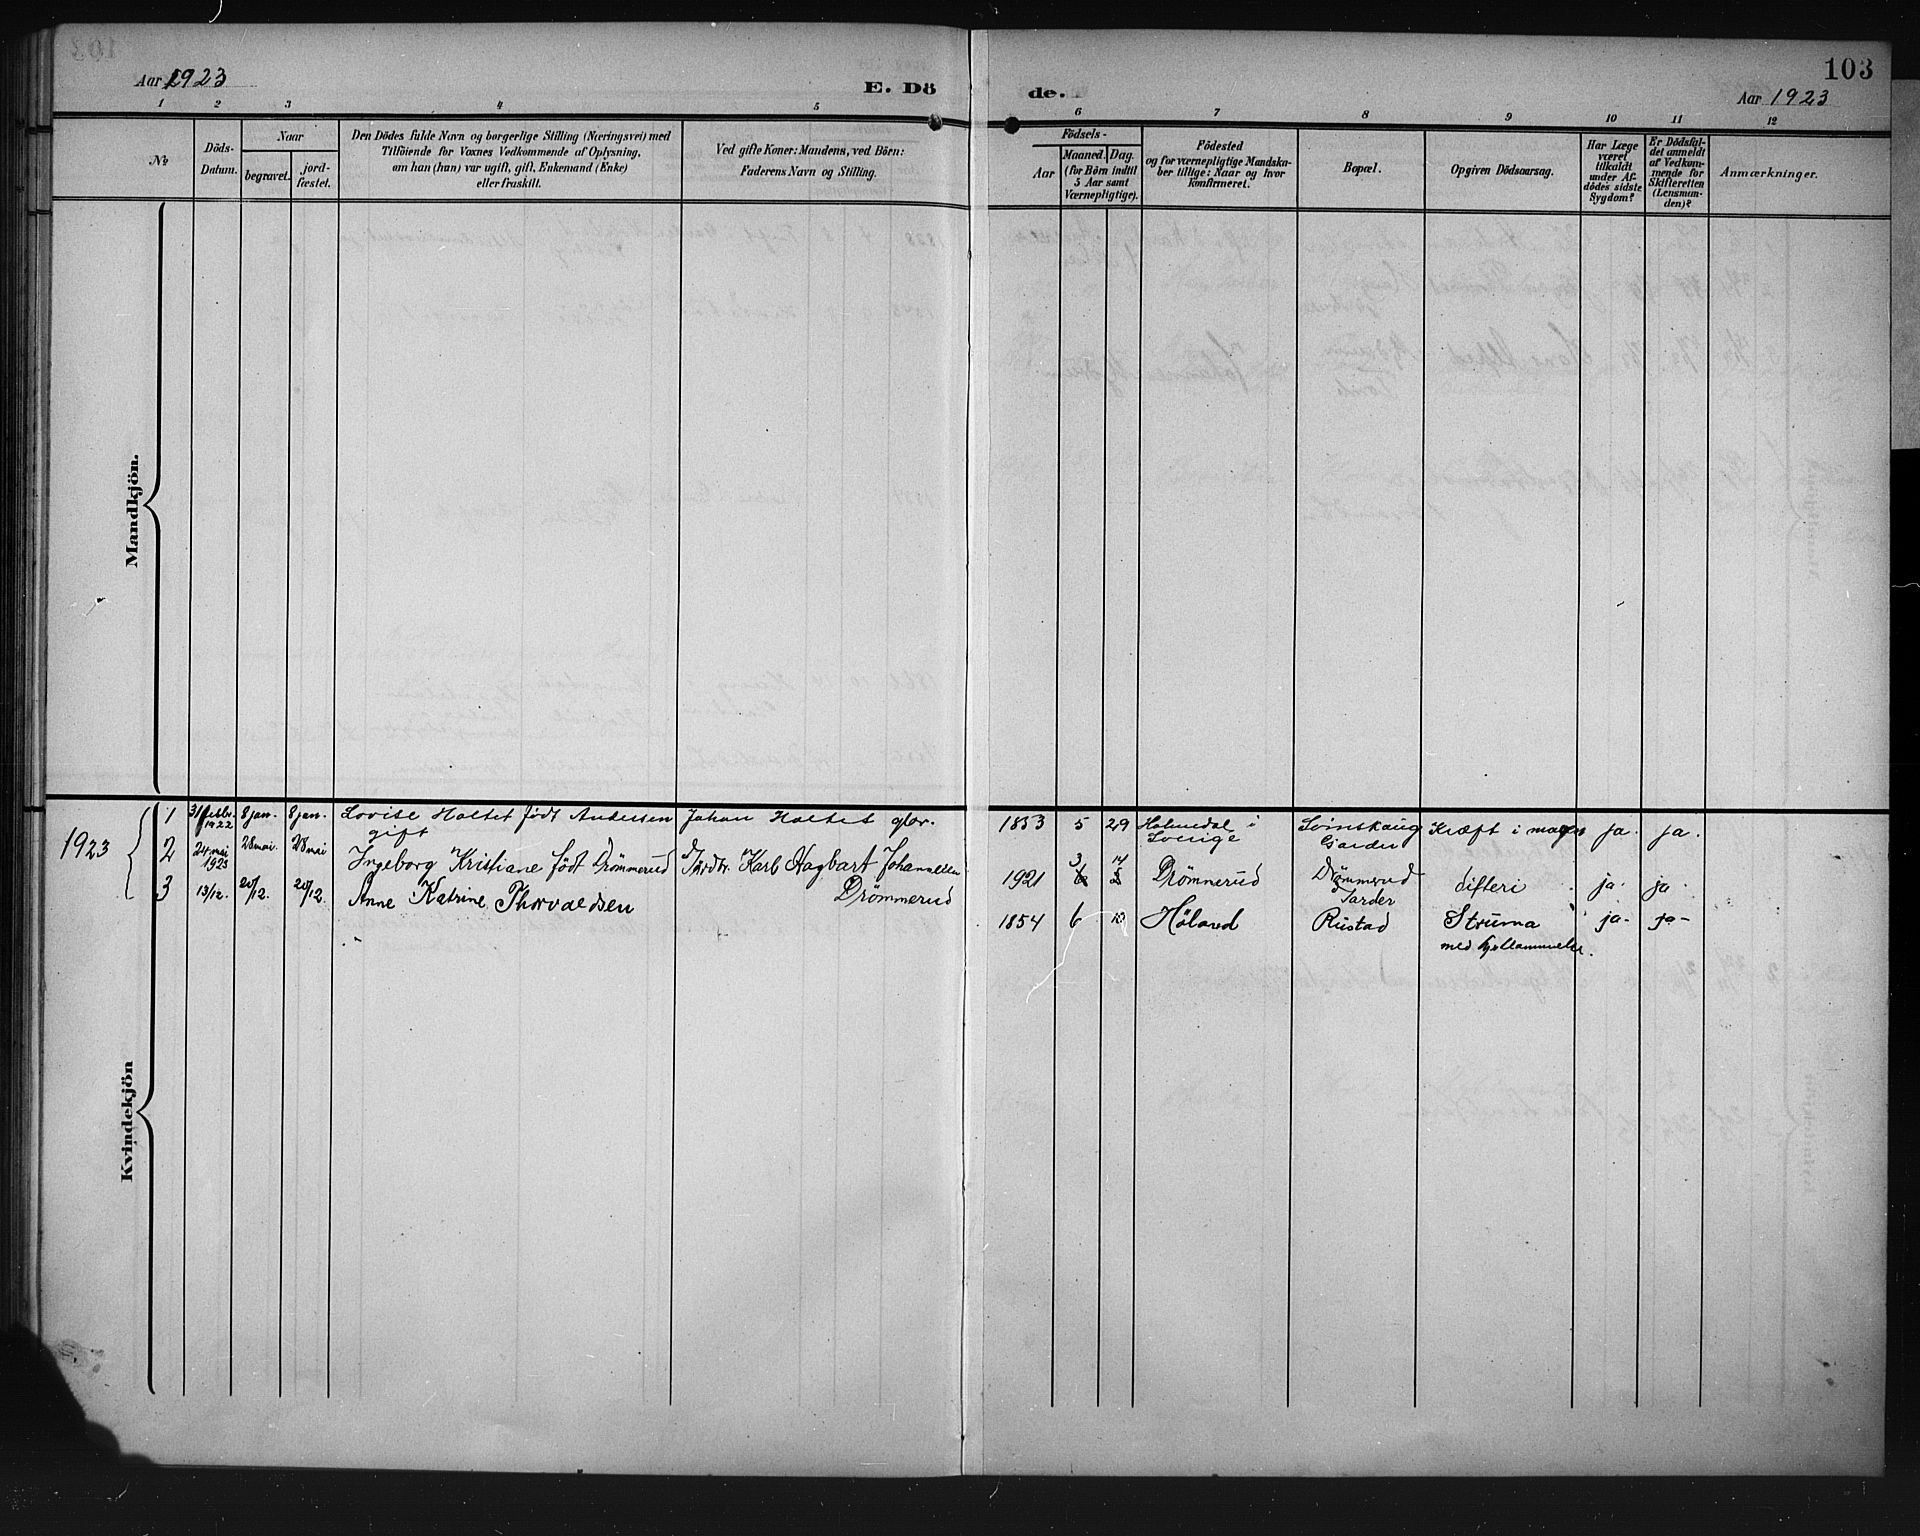 103
Aar 1923
E. Dö
de.
Aar 1923
1 2 3 4 5
6 7 8 9 10 11 12
No
Döds-
Datum.
Naar
begravet.
jord-
fæstet.
Den Dödes fulde Navn og borgerlige Stilling (Næringsvei) med
Tilföiende for Voxnes Vedkommende af Oplysning,
om han (hun) var ugift, gift, Enkemand (Enke)
eller fraskilt.
Ved gifte Koner: Mandens, ved Börn:
Faderens Navn og Stilling.
Födsels-
Aar
Maaned.
Dag.
(for Börn indtil
5 Aar samt
Værnepligtige).
Födested
og for værnepligtige Mandska-
ber tillige: Naar og hvor
konfirmeret.
Bopæl.
Opgiven Dödsaarsag.
Har Læge
været
tilkaldt
under Af-
dödes sidste
Sygdom?
Er Dödsfal-
det anmeldt
af Vedkom-
mende for
Skifteretten
(Lensman-
den)?
Anmærkninger.
Mandkjön.
Kvindekjön
1923
1 31 1922 8 jan. 8 jan. Lovise Holtet født Andersen
gift
Johan Holtet
1853 5 29 Holmedal i
Sverige
Garder
Kræft i maven ja. ja.
2 24 mai 1923 28 mai. 28 mai Ingeborg Kristiane født Drömmerud
Karl Hagbart Johannessen
Drömmerud
1921 3 14 Drömmerud Drömmerud
Garder
difteri ja. ja.
3 13/12. 20/12. 20/12. Anne Katrine Thorvaldsen
1854 6 Høland Rustad Struma ja- ja-
med